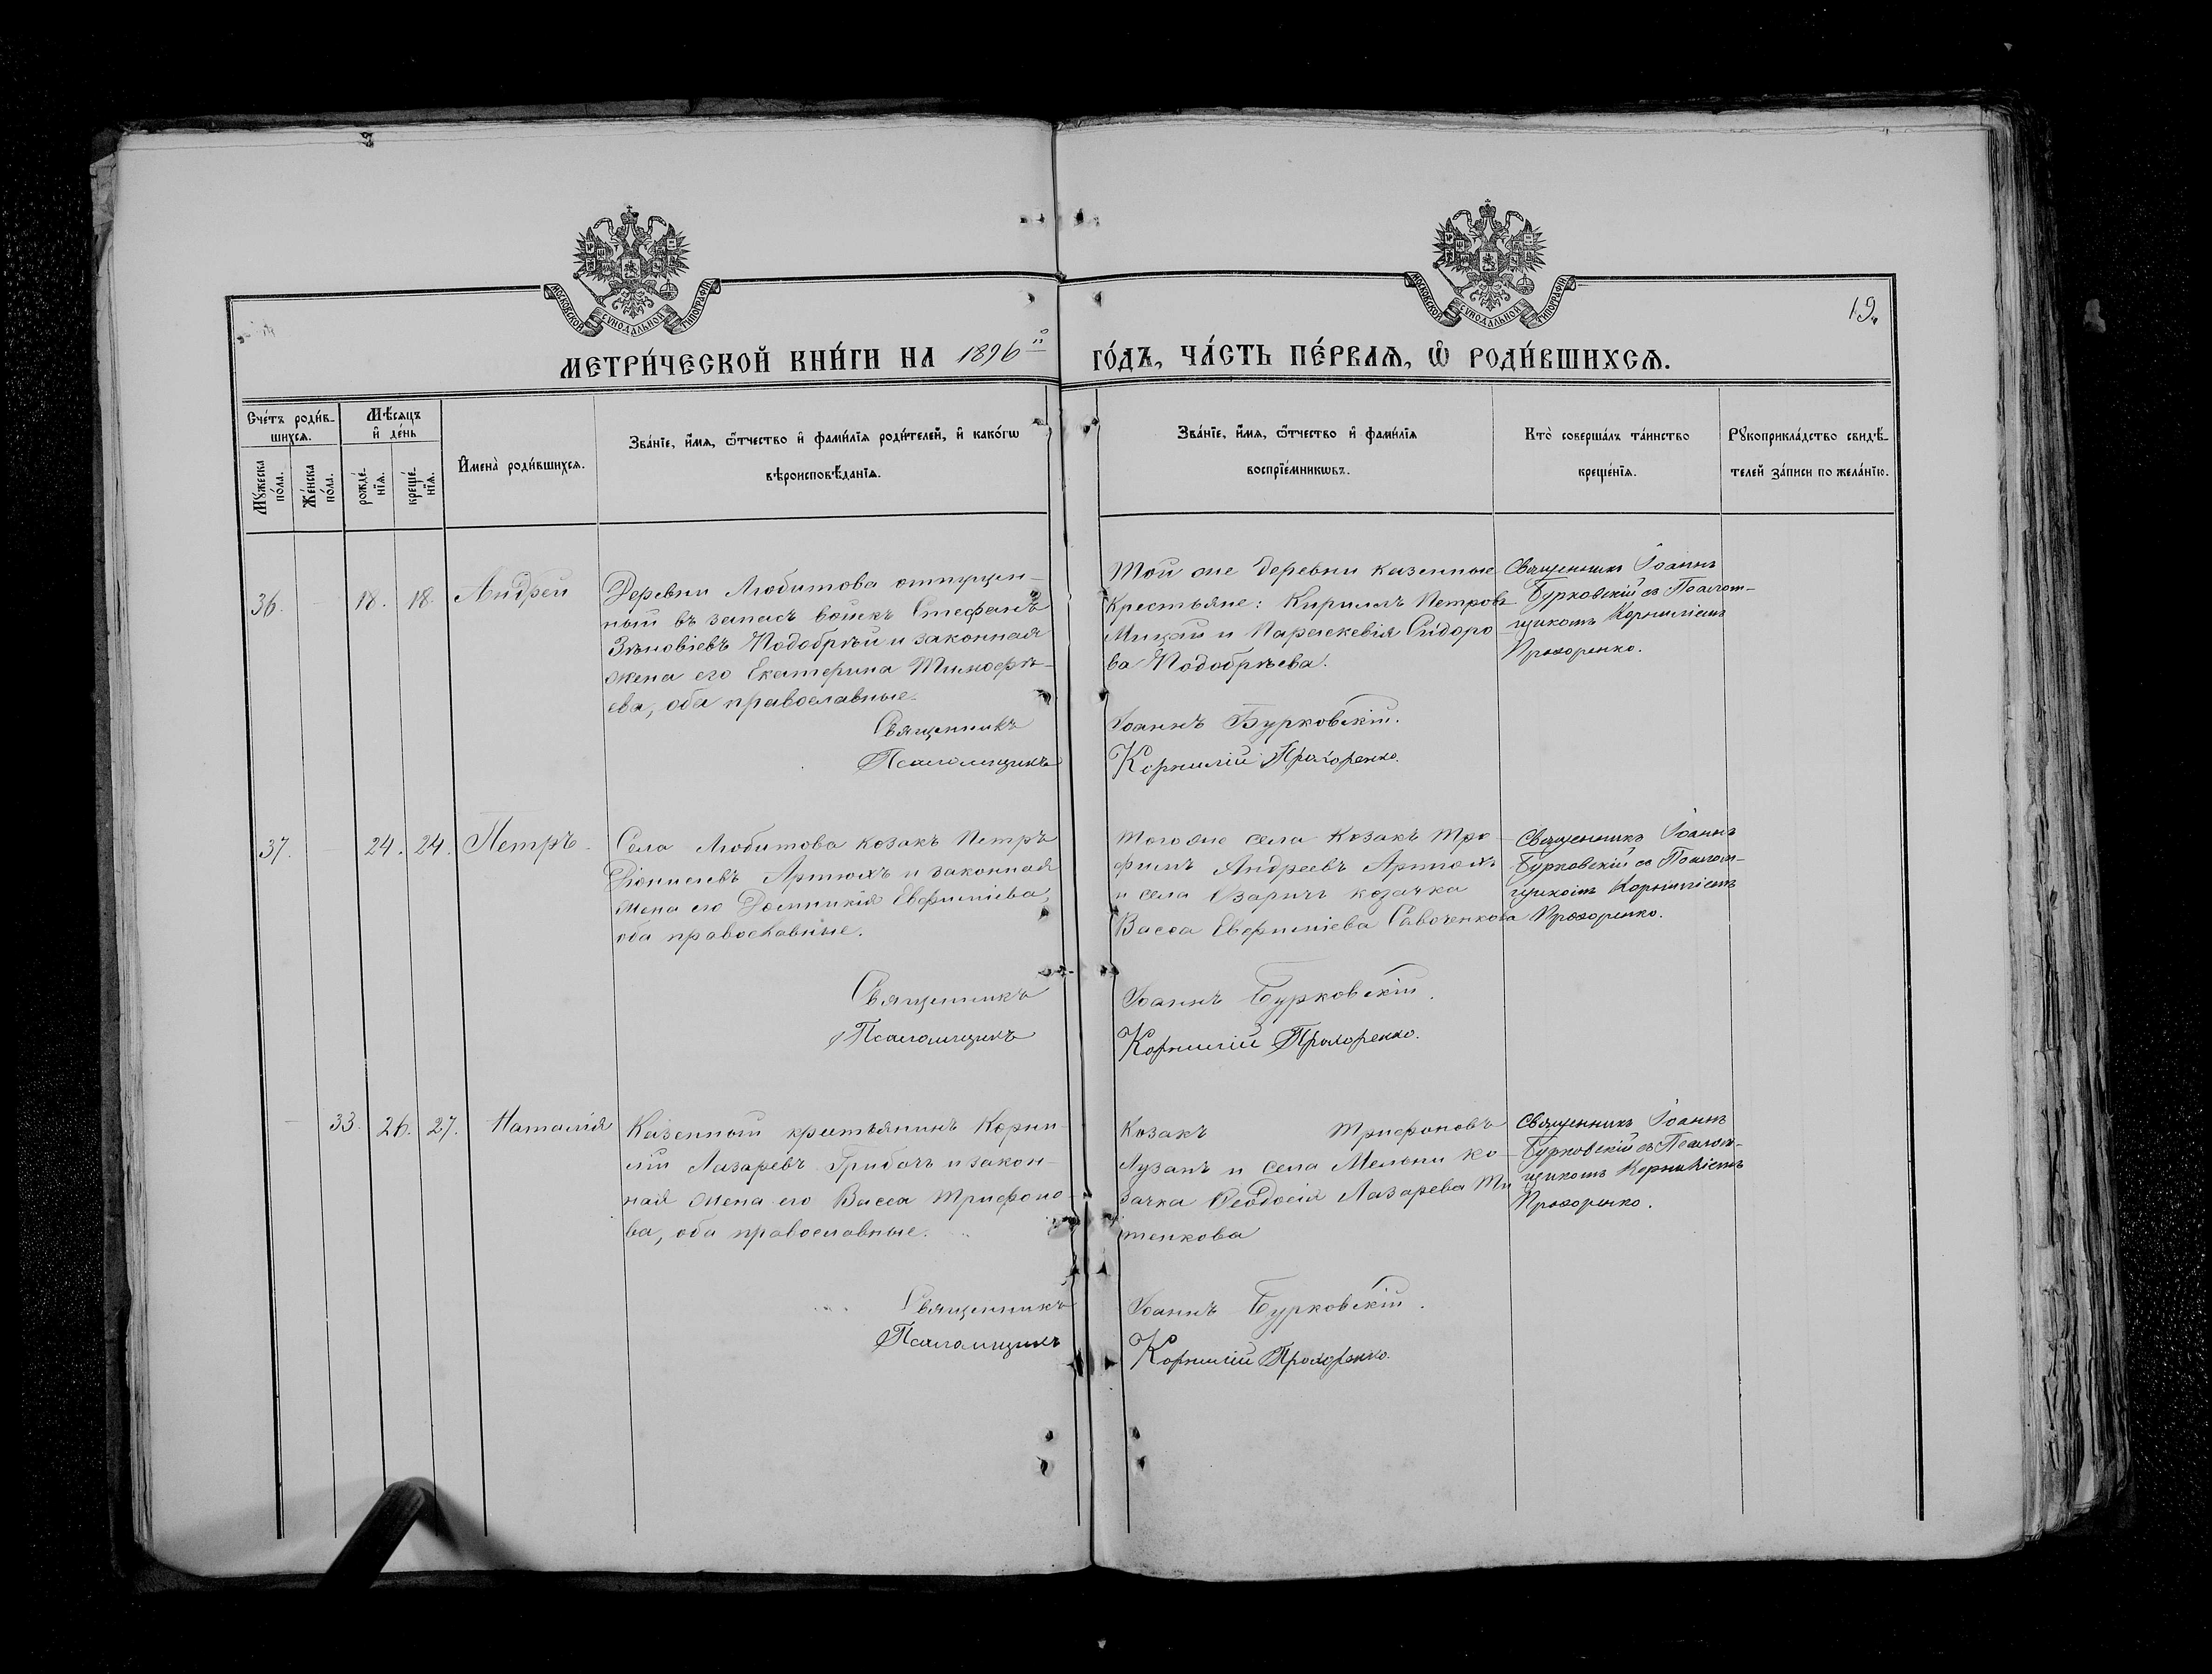 МОСКОВСКОЙ СѴНОДАЛЬНОЙ ТИПОГРАФІИ
МОСКОВСКОЙ СѴНОДАЛЬНОЙ ТИПОГРАФІИ
19.
МЕТРИ́ЧЕСКОЙ КНИ́ГИ НА 1896й ГО́ДЪ, ЧА́СТЬ ПЕ́РВАЯ, Ѡ҆ РОДИ́ВШИХСЯ.
Сче́тъ роди́в-
шихся.
Мꙋ́жеска по́ла.
Же́нска по́ла.
Мѣ́сяцъ
и҆ де́нь
рожде́-нїя.
креще́-нїя.
И҆мена̀ роди́вшихся.
Зва́нїе, и҆́мя, ѻ҆́тчество и҆ фами́лїя роди́телей, и҆ како́гѡ
вѣроисповѣ́данїя.
Зва́нїе, и҆́мя, ѻ҆́тчество и҆ фами́лїя
воспрїе́мникѡвъ.
Кто̀ соверша́лъ та́инство
креще́нїя.
Рꙋкоприкла́дство свидѣ́-
телей за́писи по жела́нїю.
36. - 18. 18. Андрей
Деревни Любитова отпущен-
ный въ запасъ войскъ Стефанъ
Зѣновіевъ Подобрѣй и законная
жена его Екатерина Тимофѣ-
ева, оба православные.
Священникъ
Псаломщикъ
Той же деревни казенные
крестьяне: Кириллъ Петровъ
Мицай и Параскевія Сидоро
ва Подобрѣева.
Іоаннъ Бурковскій.
Корнилій Прохоренко.
Священникъ Іоаннъ
Бурковскій съ Псалом-
щикомъ Корниліемъ
Прохоренко.
37. - 24. 24. Петръ.
Села Любитова козакъ Петръ
Діонисіевъ Артюхъ и законная
жена его Домникія Евфиміева,
оба православные.
Священникъ
Псаломщикъ
Того же села козакъ Тро
фимъ Андреевъ Артюхъ
и села Озаричъ козачка
Васса Евфиміева Савоченкова
Іоаннъ Бурковскій.
Корнилій Прохоренко.
Священникъ Іоаннъ
Бурковскій съ Псалом-
щикомъ Корниліемъ
Прохоренко.
- 33. 26. 27. Наталія
Казенный крестьянинъ Корни-
лій Лазаревъ Грибачъ и закон-
ная жена его Васса Трифоно-
ва, оба православные.
Священникъ
Псаломщикъ
Козакъ Трифоновъ
Лузанъ и села Мельни ко-
зачка Ѳеодосія Лазарева Ти
тенкова
Іоаннъ Бурковскій.
Корнилій Прохоренко.
Священникъ Іоаннъ
Бурковскій съ Псалом-
щикомъ Корниліемъ
Прохоренко.